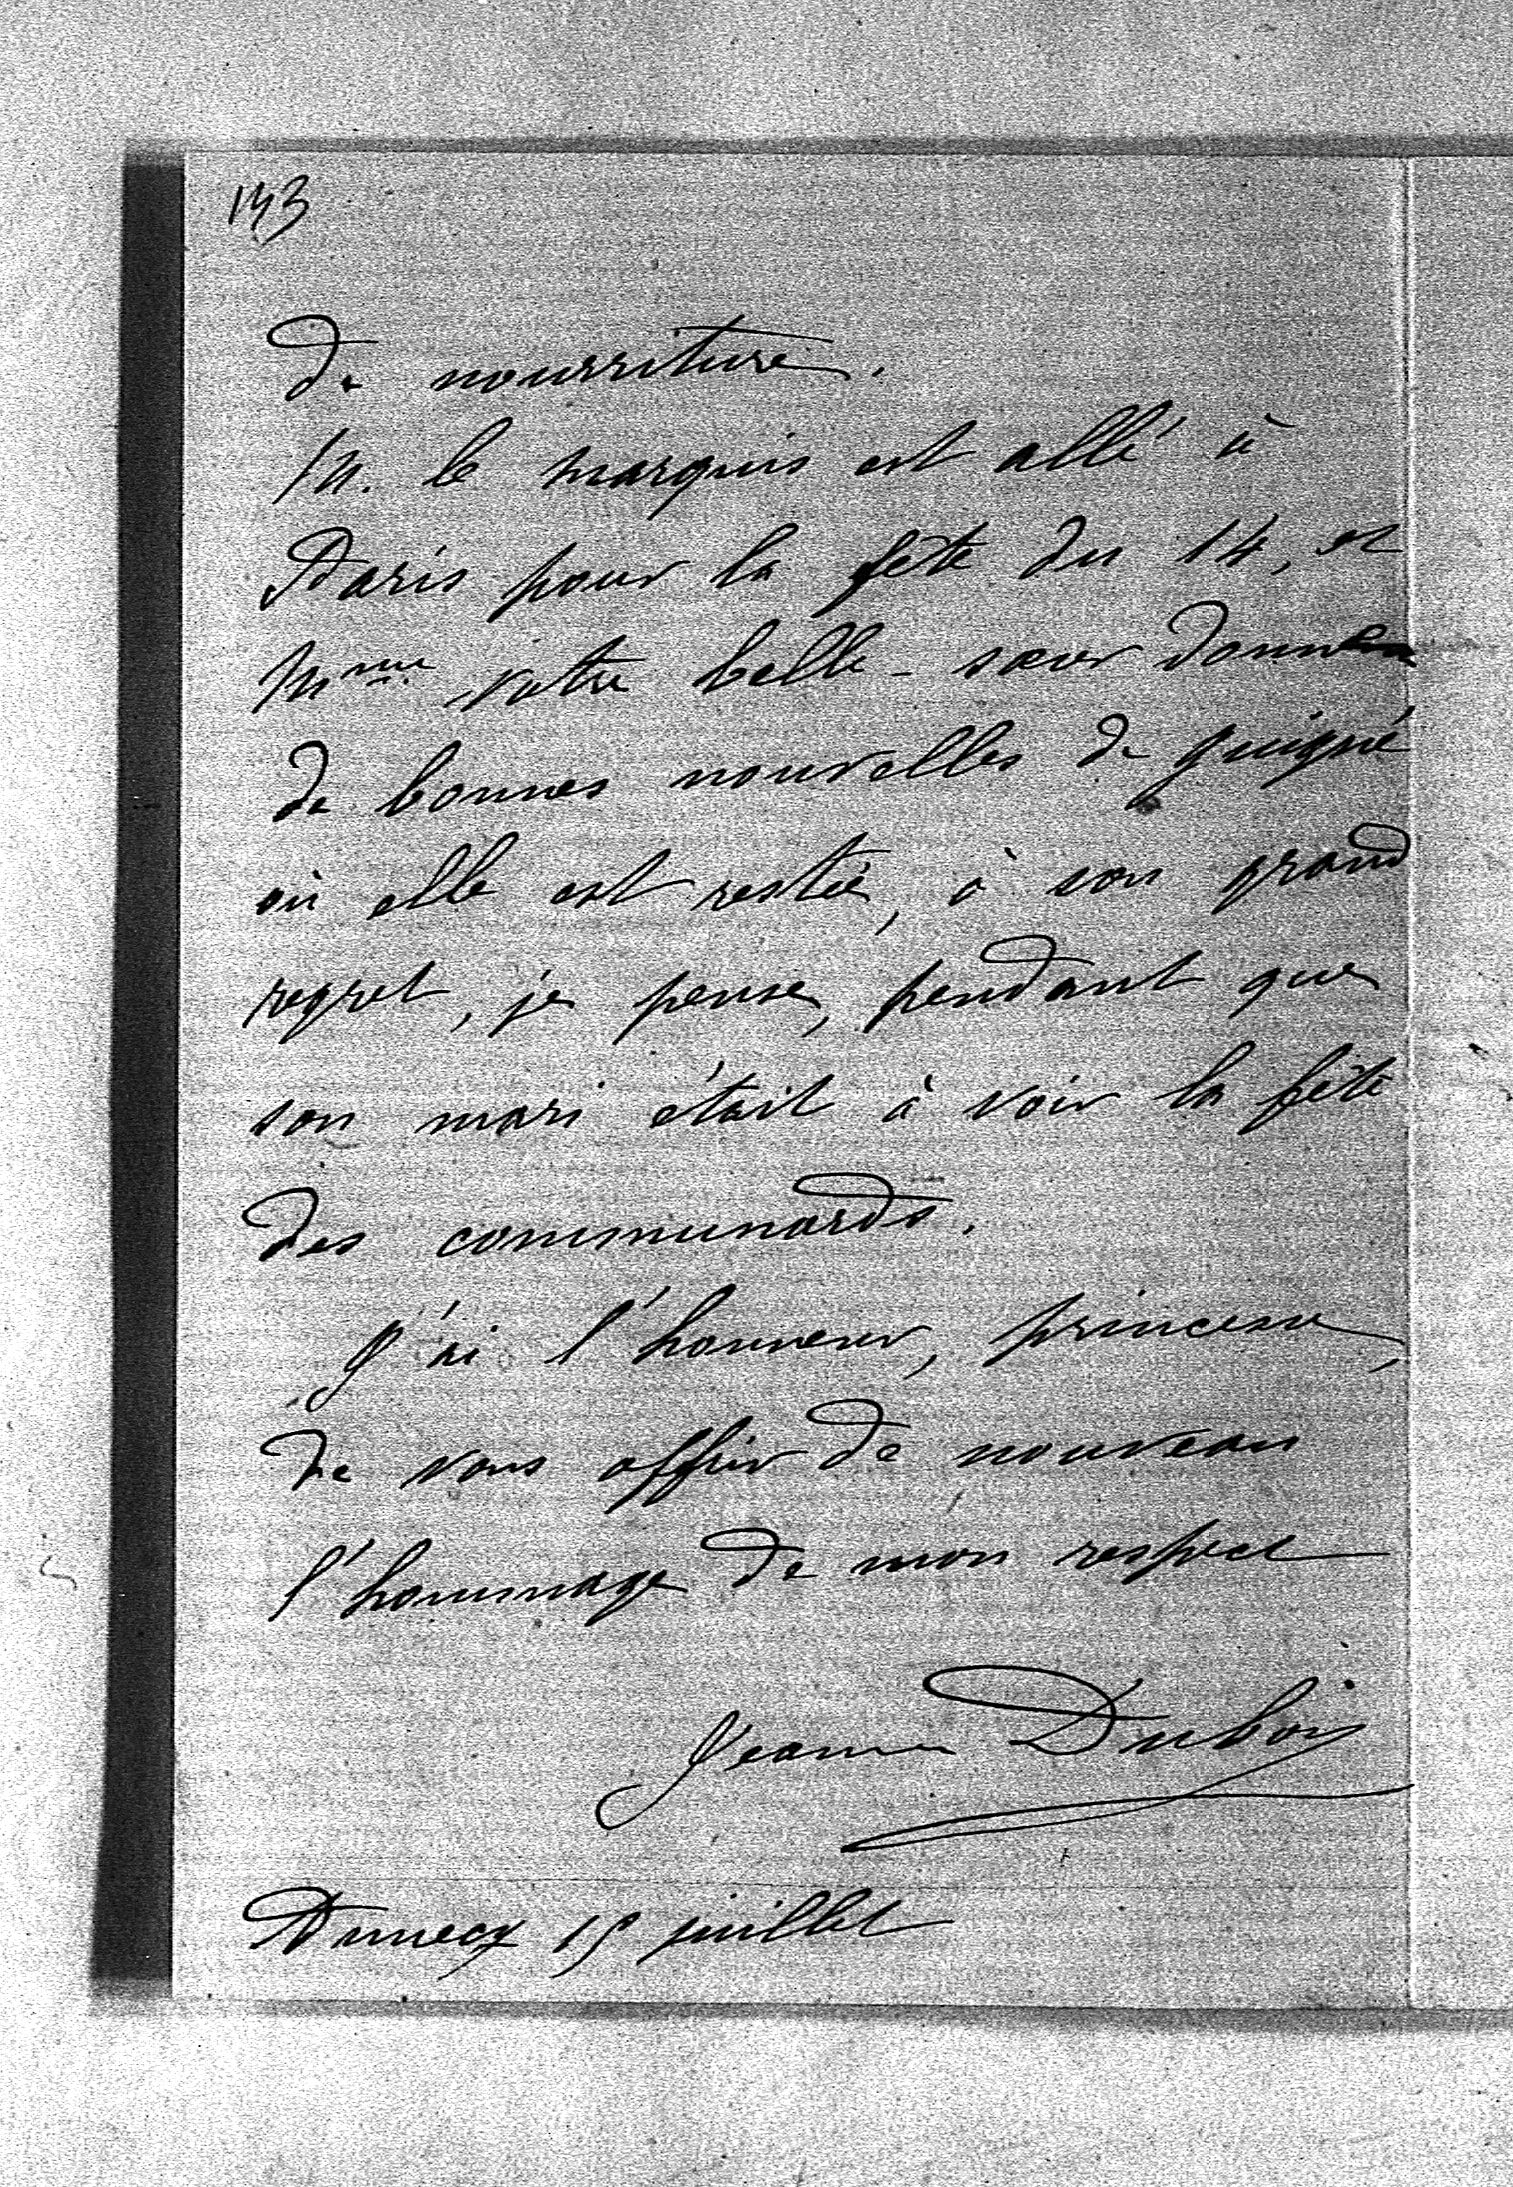 143
de nourriture.
M. le marquis est allé à
Paris pour la fête du 14, et
Mme votre belle-sœur donne
de bonnes nouvelles de Guigné
où elle est restée, à son grand
regret, je pense, pendant que
son mari était à voir la fête
des communards.
J'ai l'honneur, princesse,
de vous offrir de nouveau
l'hommage de mon respect
Jeanne Dubois
15 juillet